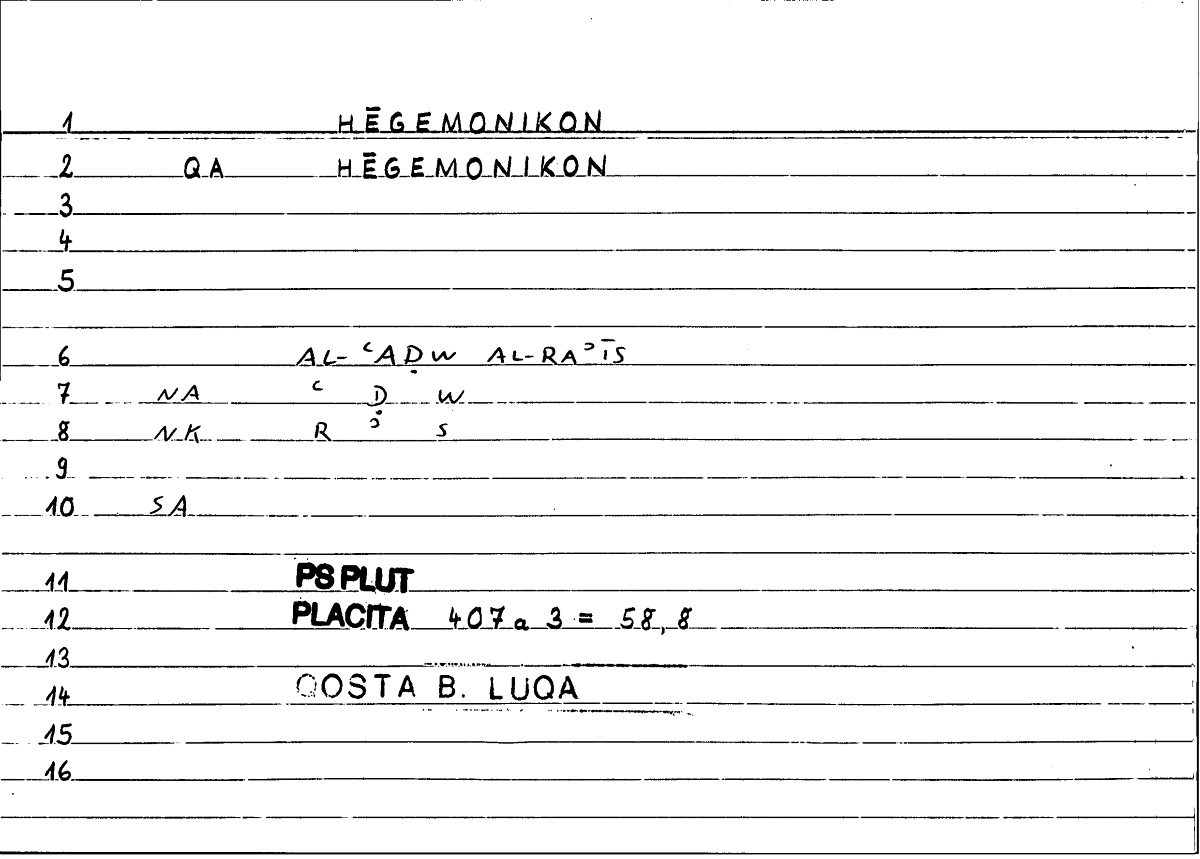 1 HĒGEMONIKON
2 QA HĒGEMONIKON
3
4
5
6 AL-ʿAḌW AL-RAʾĪS
7 NA ʿ Ḍ W
8 NK R ʾ S
9
10 SA
11 PS PLUT
12 PLACITA 407a 3 = 58,8
13
14 QOSTA B. LUQA
15
16